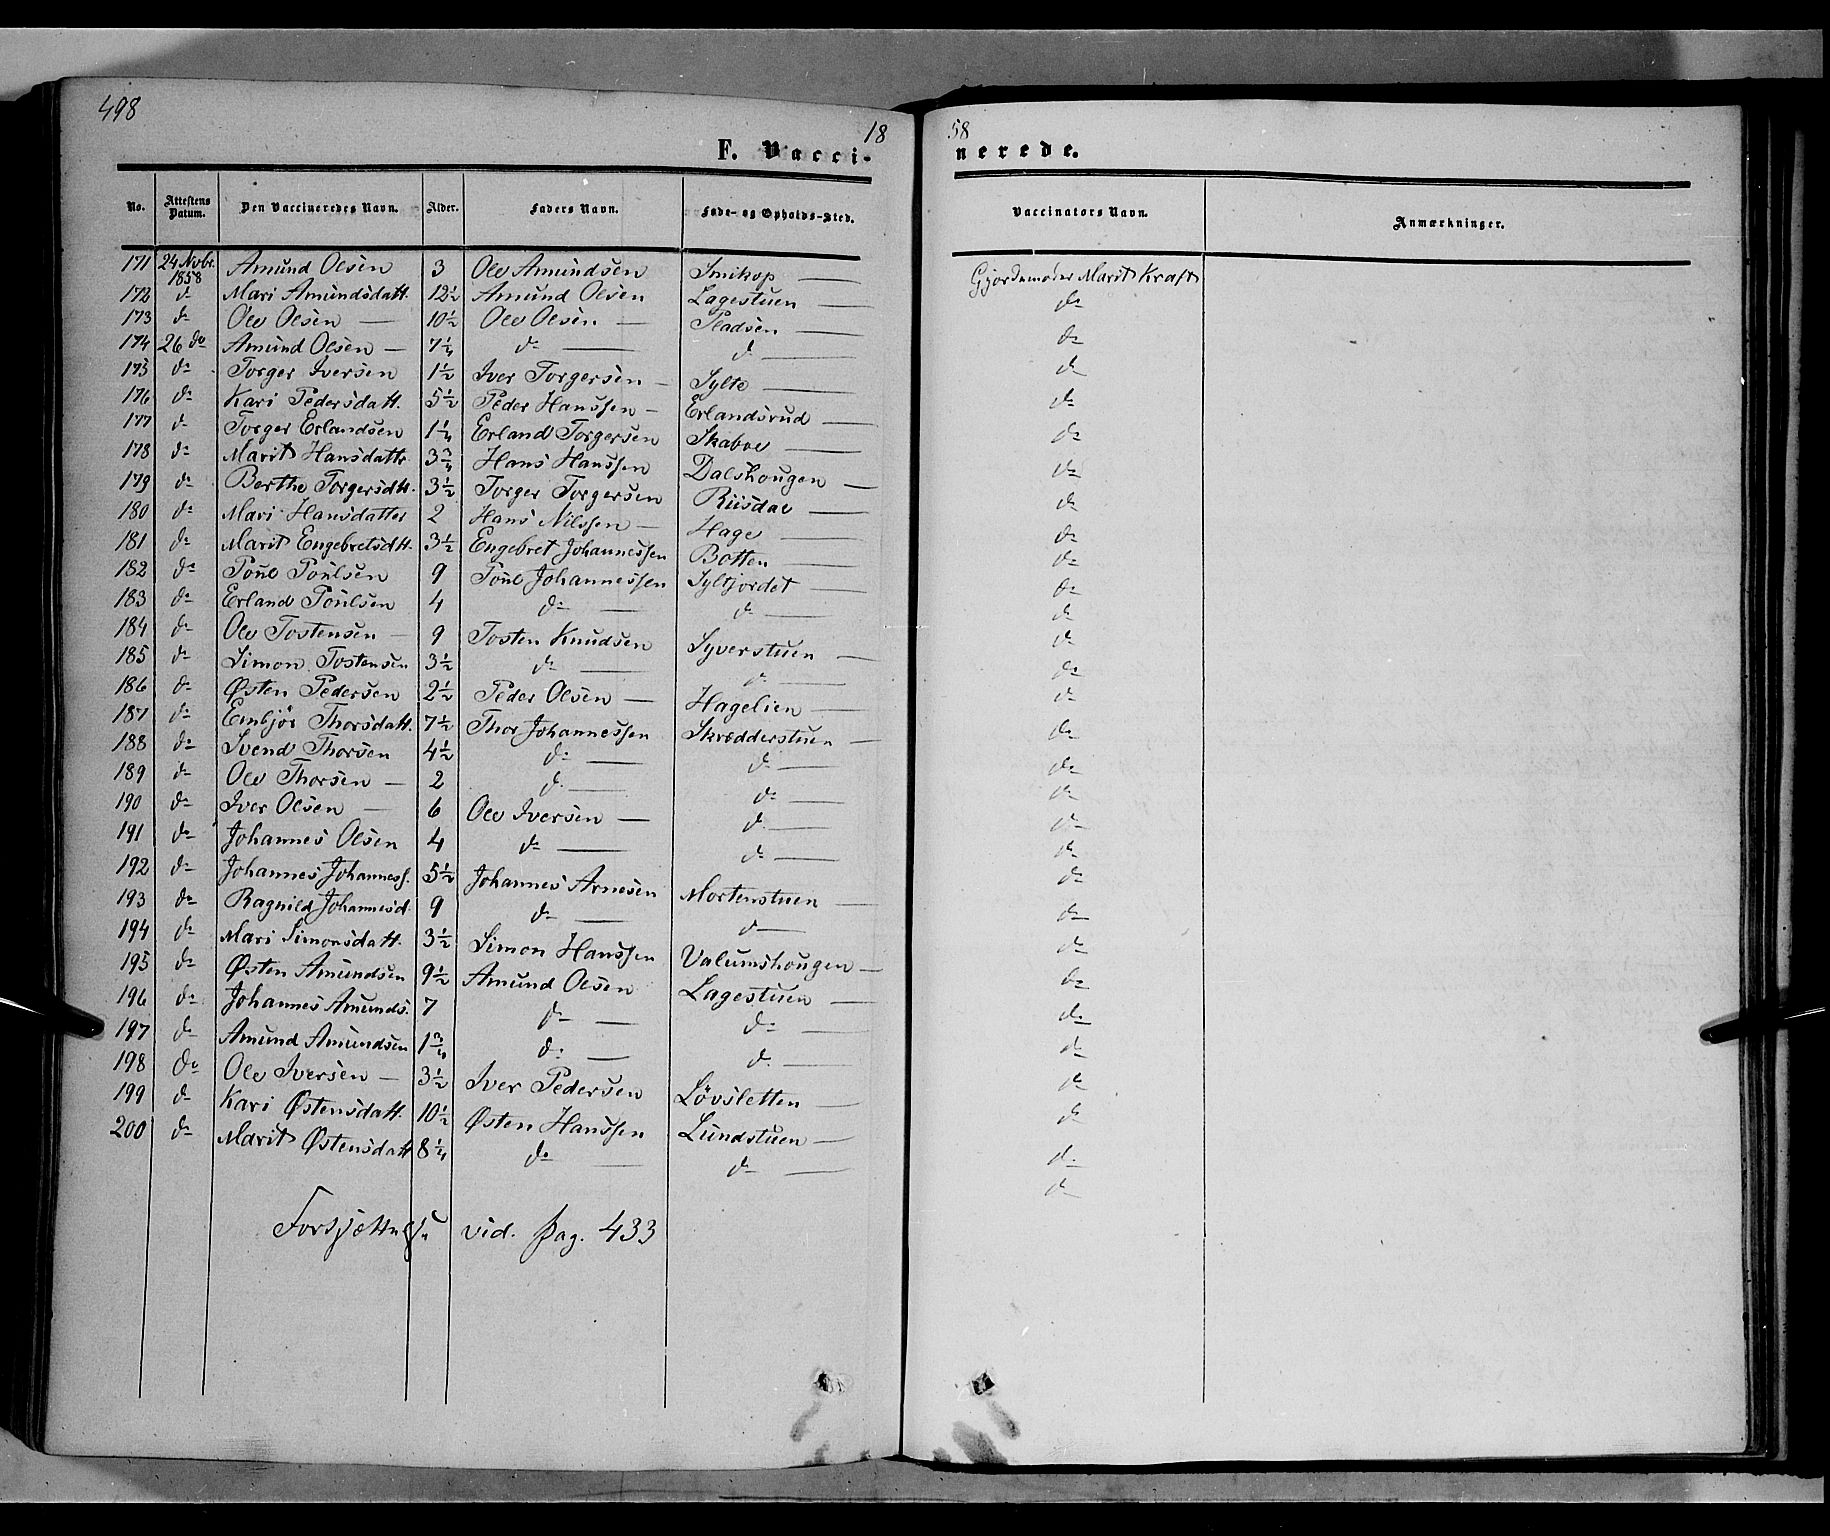 498
18 58
F. Vaccinerede.
No. Attestens Datum. Den Vaccineredes Navn. Alder. Faders Navn. Føde- og Opholds-Sted. Vaccinators Navn. Anmærkninger.
171 24 Novbr. 1858 Amund Olsen 3 Ole Amundsen Smikop — Gjordemoder Marit Kraft
172 do Mari Amundsdatt. 12½ Amund Olsen Lagestuen — do
173 do Ole Olsen — 10½ Ole Olsen — Pladsen — do
174 26 do Amund Olsen — 7¼ do — do — do
175 do Torger Iversen 1½ Iver Torgersen — Sylte — do
176 do Kari Pedersdatt. 5½ Peder Hanssen — Erlandsrud — do
177 do Torger Erlandsen 1¼ Erland Torgersen Skaboe — do
178 do Marit Hansdattr 3¾ Hans Hanssen Dalshougen — do
179 do Berthe Torgersdtt. 3½ Torger Torgersen Riisdal — do
180 do Mari Hansdatter 2 Hans Nilssen — Hage — do
181 do Marit Engebretsdtt. 3½ Engebret Johannessen Botten — do
182 do Poul Poulsen 9 Poul Johannessen Syltjordet — do
183 do Erland Poulsen 4 do — do — do
184 do Ole Tostensen — 9 Tosten Knudsen Syverstuen — do
185 do Simon Tostensen 3½ do — do — do
186 do Østen Pedersen 2½ Peder Olsen — Hagelien — do
187 do Embjør Thorsdatt. 7½ Thor Johannessen Skrædderstuen — do
188 do Svend Thorsen 4½ do — do — do
189 do Ole Thorsen — 2 do — do — do
190 do Iver Olsen — 6 Ole Iversen — do — do
191 do Johannes Olsen 4 do — do — do
192 do Johannes Johanness. 5½ Johannes Arnesen Mortenstuen — do
193 do Ragnild Johannesd. 9 do — do — do
194 do Mari Simonsdatt. 3½ Simon Hanssen Valumshougen — do
195 do Østen Amundsen 9½ Amund Olsen Lagestuen — do
196 do Johannes Amunds. 7 do — do — do
197 do Amund Amundsen 1¾ do — do — do
198 do Ole Iversen — 3½ Iver Pedersen Løvsletten — do
199 do Kari Østensdatt. 10½ Østen Hanssen Lundstuen — do
200 do Marit Østensdatt 8¼ do — do — do
vid. pag. 433